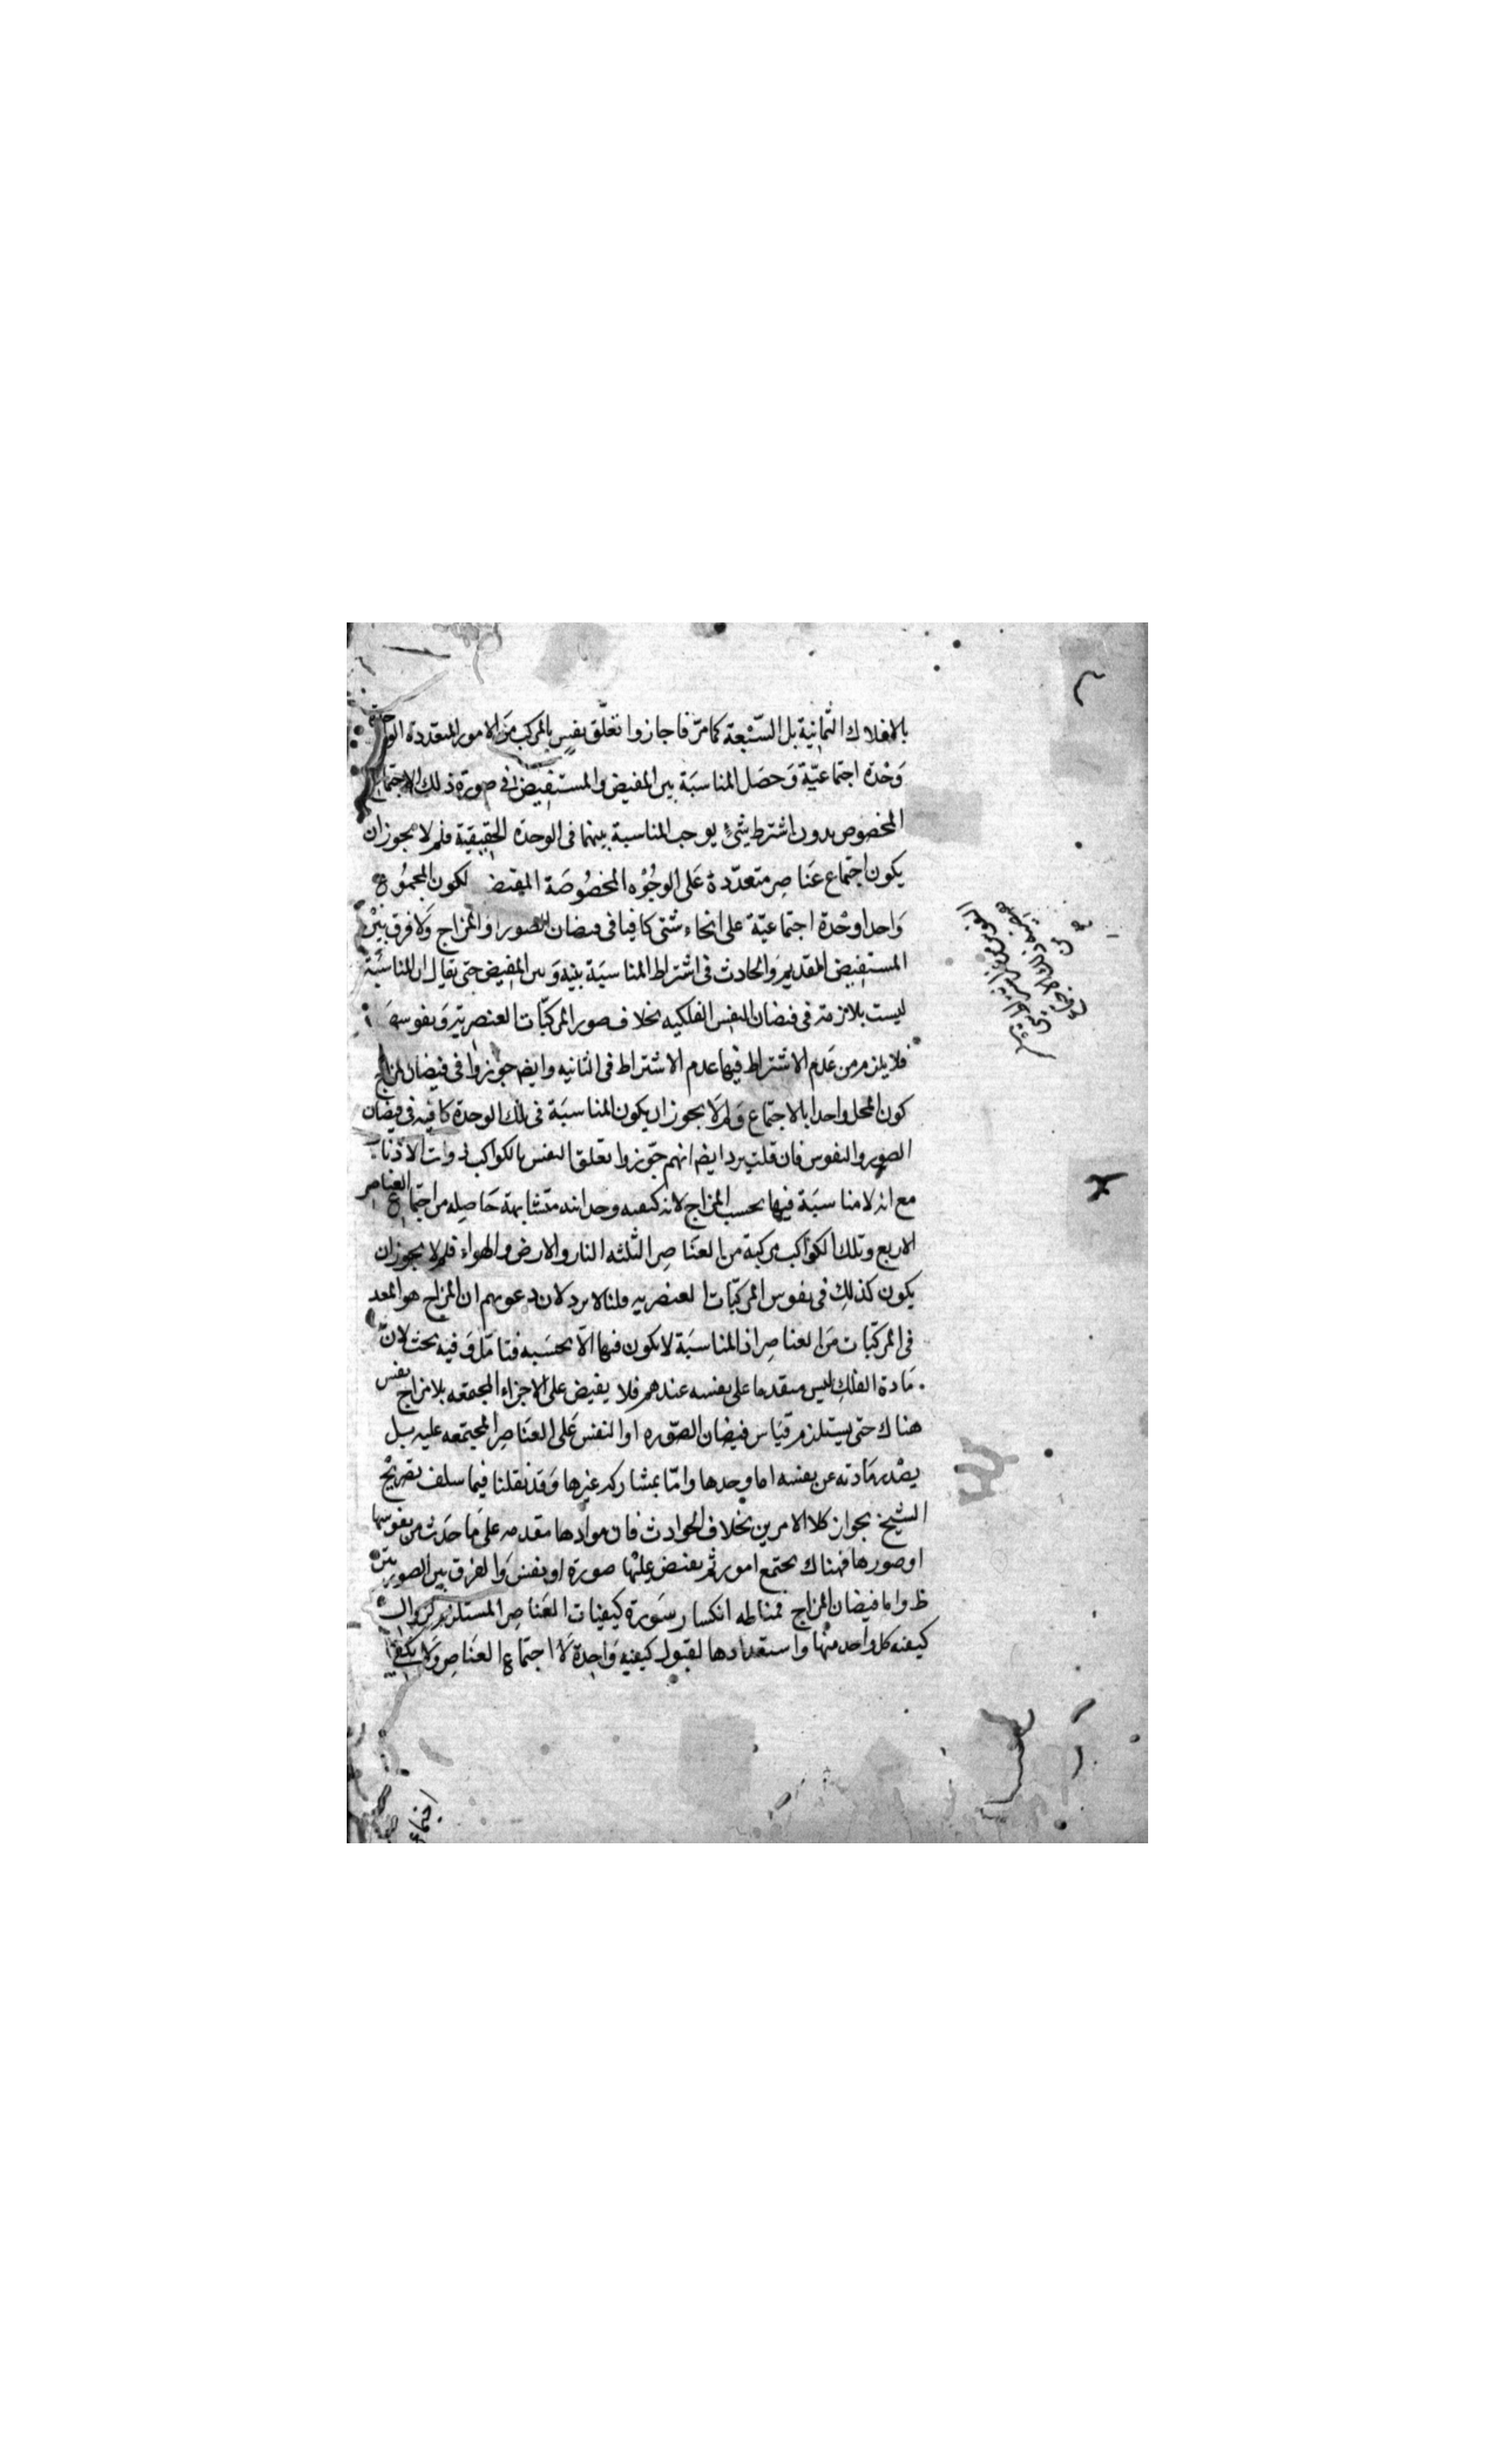 بالافلاك الثمانية بل السّبعة كما مرّ فاجازوا تعلّق نفس بالمركب من الامور المتعددة
وَحْدة اجتماعيّة وَحصَل المناسبَة بين المفيض والمستفيض في صورة ذلك الاجتماع
المخصوص بدون اشتراط شئ يوجب المناسبة بينهما فى الوحدة الحقيقية فلم لا يجوز ان
يكون اجتماع عنَاصِر متعدّدة عَلى الوجُوْه المخصُوصَة المقتض لكون المجموُع
وَاحدا وحْدة اجتماعيّة على انحاء شتى كافيا فى فيضان الصور او المزاج وَلا فرق بيْن
المستفيض القديم وَالحادث فى اشتراط المناسبَة بينه وَبين المفيض حتى يقال ان المناسبَة
ليست بلازمة فى فيضان النفس الفلكيه بخلاف صور المركبّات العنصرية وَنفوسهَا
فلا يلزم من عَدم الاشتراط فيها عدم الاشتراط فى الثانيه وايض جوّزوا فى فيضان المزاج
كون المحل واحدا بالاجتماع وَلم لَا يجوز ان يكون المناسبَة فى تلك الوحدة كافيه فى فيضان
الصور والنفوس فان قلت يرد ايض انهم جوّزوا تعلق النفس بالكواكب ذوات الاذناب
مع انه لا مناسبَة فيها بحسب المزاج لانه كيفيه وحدانيه متشابهة حَاصِله من اجتماع العناصر
الاربع وتلك الكوَاكب مركبة من العنَاصِر الثلثه النار والارض والهواء فلم لا يجوز ان
يكون كذلك فى نفوس المركبّات العنصريه قلنا لا يرد لان دعويهم ان المزاج هو المعد
فى المركّبات مَن العناصِر اذ المناسبَة لا يكون فيها الاّ بحسَبه فتامّل وَفيه بحث لانّ
مَادة الفلك ليس متقدما على نفسه عندهم فلا يفيض على الاجزاء المجتمعه بلا مزاج نفس
هناك حتى يستلزم قيَاس فيضان الصّوره او النفس عَلى العنَاصِر المجتمعه عليه بل
يصْدر مَادته عن نفسه اما وحدها وامّا بمشاركه غيرها وَقد نقلنا فيما سلف تصريح
الشيخ بجواز كلا الامرين بخلاف الحوادث فان موادها مقدمه على مَا حدَث من نفوسها
او صورها فهناك يجتمع امور ثم يفيض عليْها صورة او نفس وَالفرق بين الصورتين
ظ واما فيضان المزاج فمناطه انكسار سَورة كيفيات العنَاصِر المستلزم لزوال
كيفيه كل واحد منْها واستعدادها لقبول كيفيه وَاحدة لَا اجتماع العنَاصِر وَلا يكفى